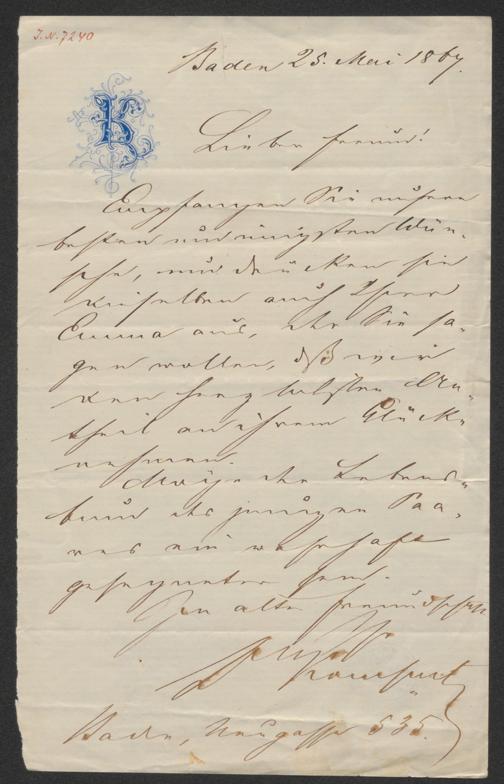 J.N. 7240
Baden 25. Mai 1867.
K
Lieber Freund!
Empfangen Sie unsere
besten und innigsten Wün-
sche, und drücken Sie
dieselben auch Ihrer
Emma aus, der Sie sa-
gen wollen, daß wir
den herzlichsten An-
theil an ihrem Glücke
nehmen.
Möge der Lebens-
bund des jungen Paa-
res ein wahrhaft
gesegneter sein.
In alter Freundschaft
Ihr
Baden, Neugasse 535.